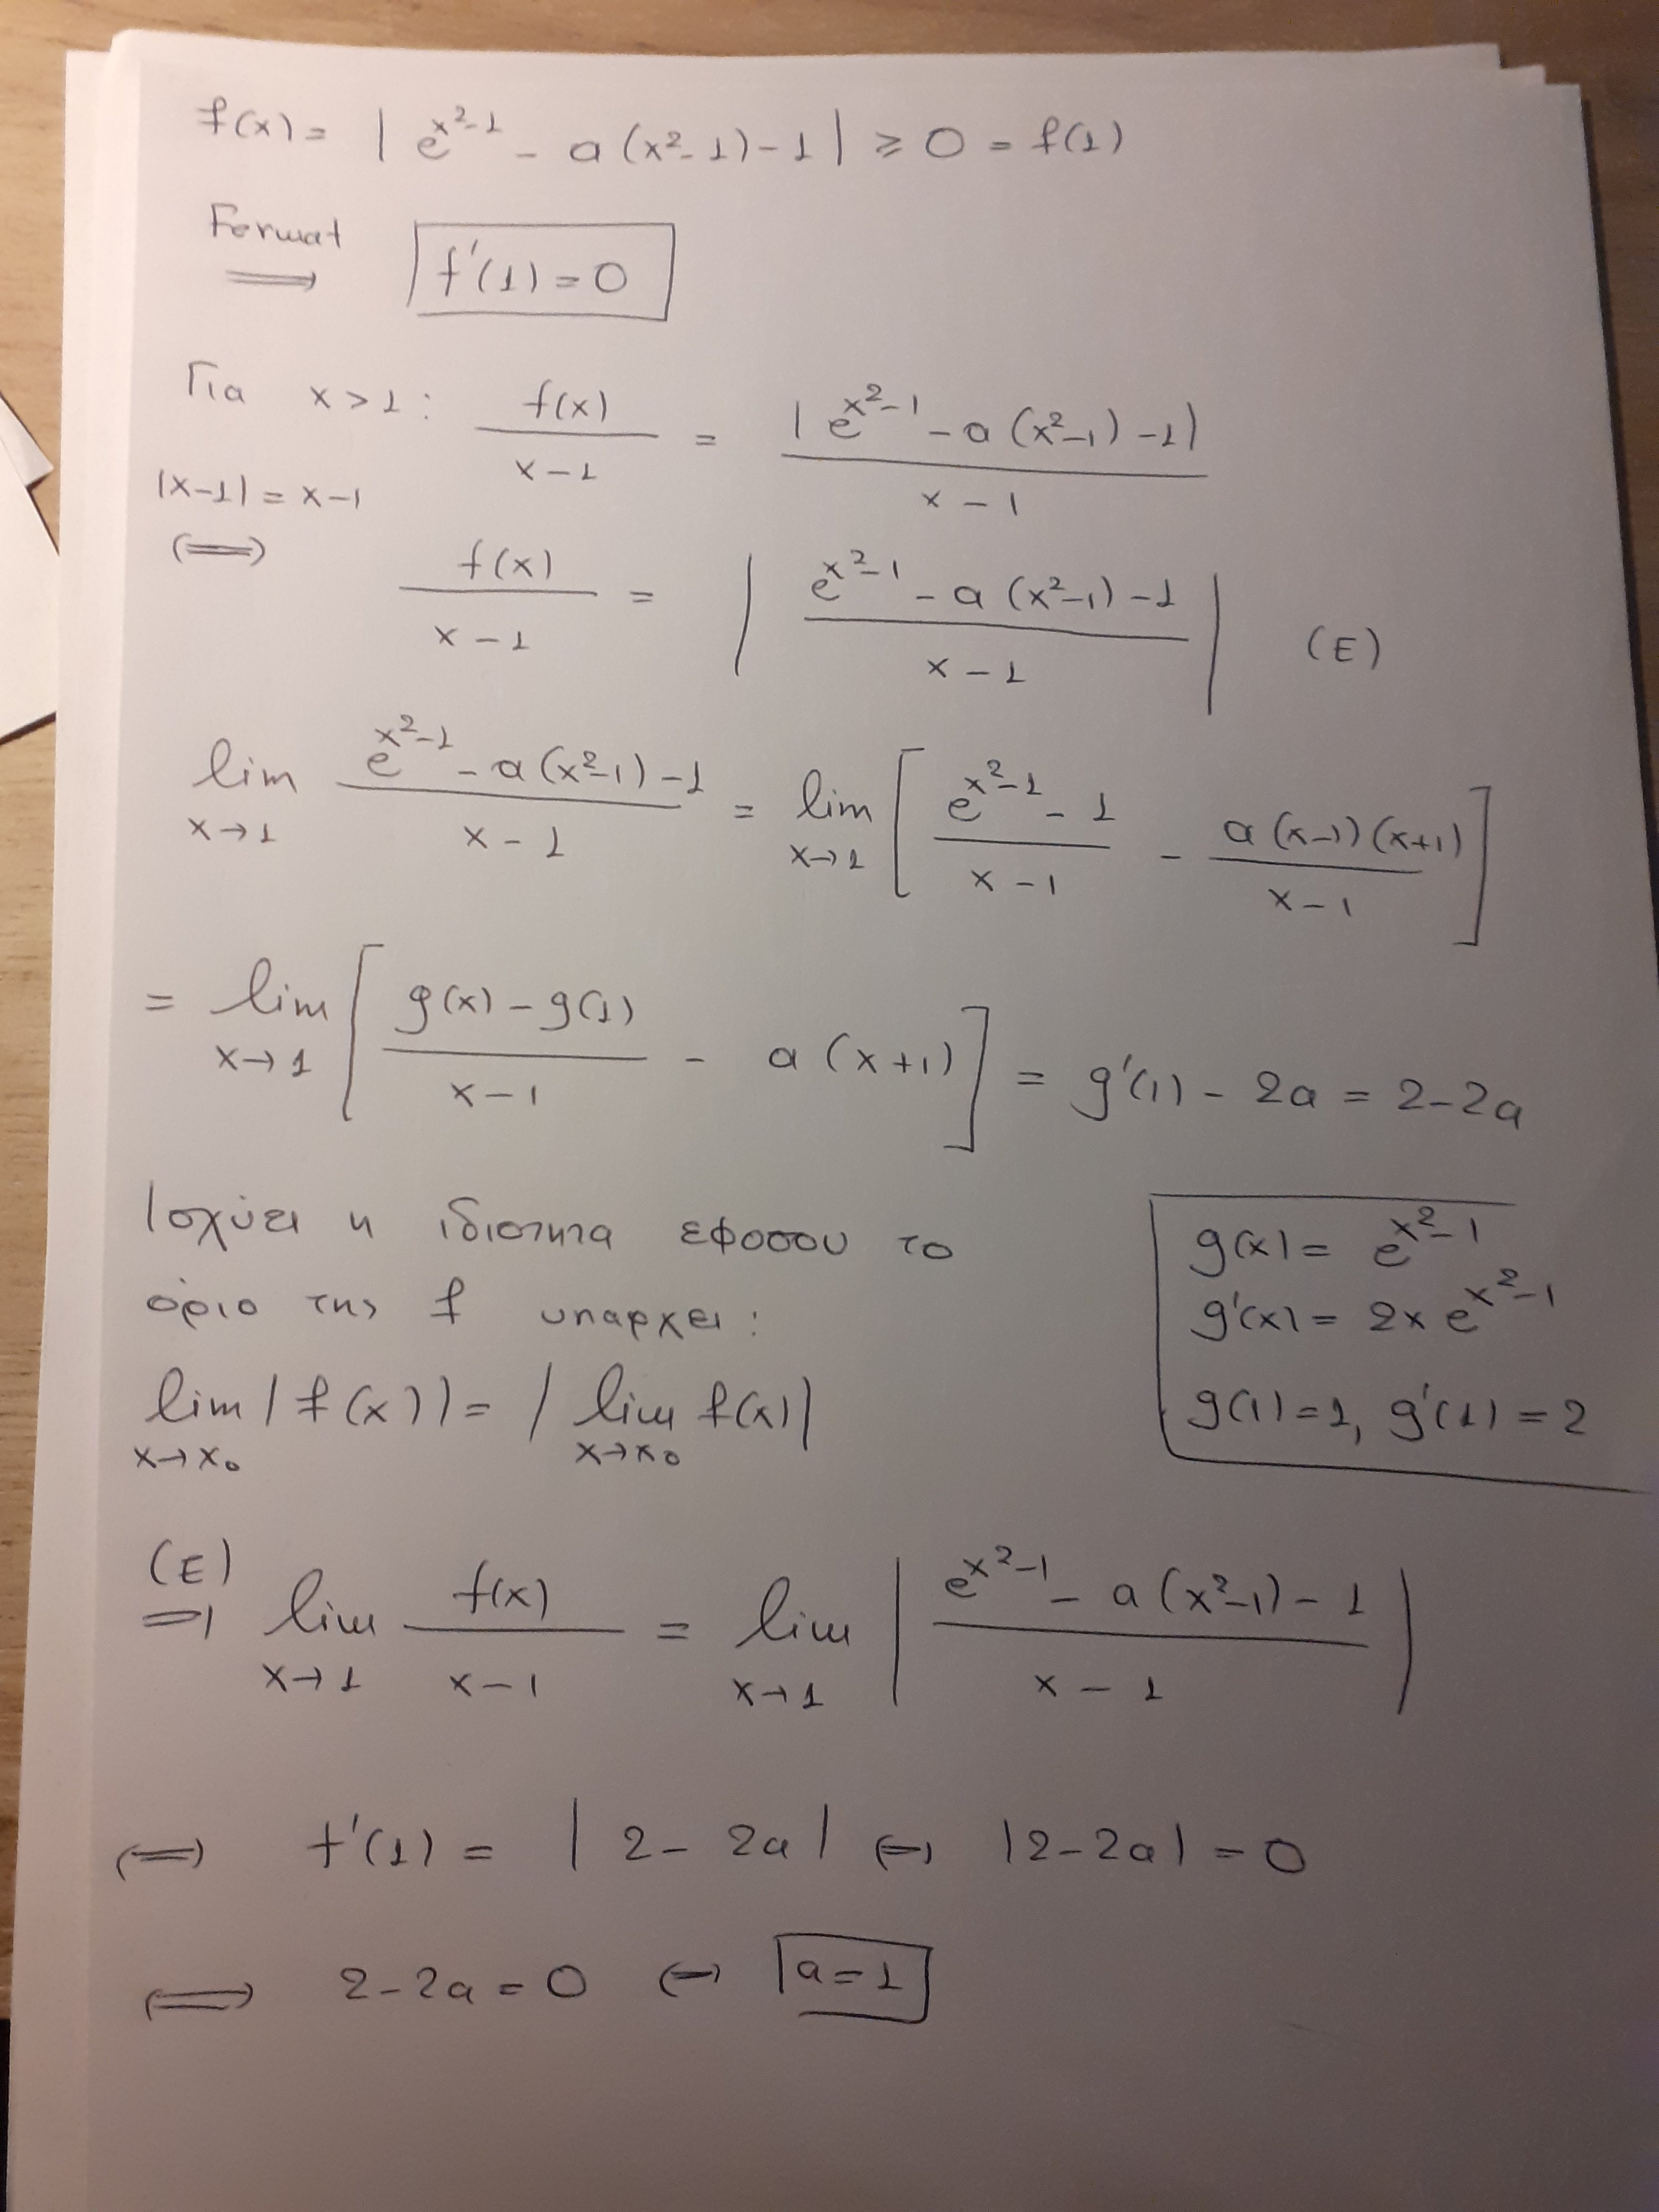 f(x) = | e^{x²-1} - a(x²-1) - 1 | ≥ 0 = f(1)
Fermat
⟹ f'(1) = 0
Για x > 1 : f(x) / (x-1) = |e^{x²-1} - a(x²-1) - 1| / (x-1)
|x-1| = x-1
⟺ f(x) / (x-1) = | (e^{x²-1} - a(x²-1) - 1) / (x-1) | (E)
lim_{x→1} (e^{x²-1} - a(x²-1) - 1) / (x-1) = lim_{x→1} [ (e^{x²-1} - 1) / (x-1) - a(x-1)(x+1) / (x-1) ]
= lim_{x→1} [ (g(x) - g(1)) / (x-1) - a(x+1) ] = g'(1) - 2a = 2-2a
Ισχύει η ιδιοτητα εφοσον το
όριο της f υπαρχει :
lim_{x→x₀} |f(x)| = | lim_{x→x₀} f(x) |
g(x) = e^{x²-1}
g'(x) = 2x e^{x²-1}
g(1) = 1, g'(1) = 2
(E)
⟹ lim_{x→1} f(x) / (x-1) = lim_{x→1} | (e^{x²-1} - a(x²-1) - 1) / (x-1) |
⟺ f'(1) = | 2 - 2a | ⟺ |2 - 2a| = 0
⟺ 2 - 2a = 0 ⟺ a = 1